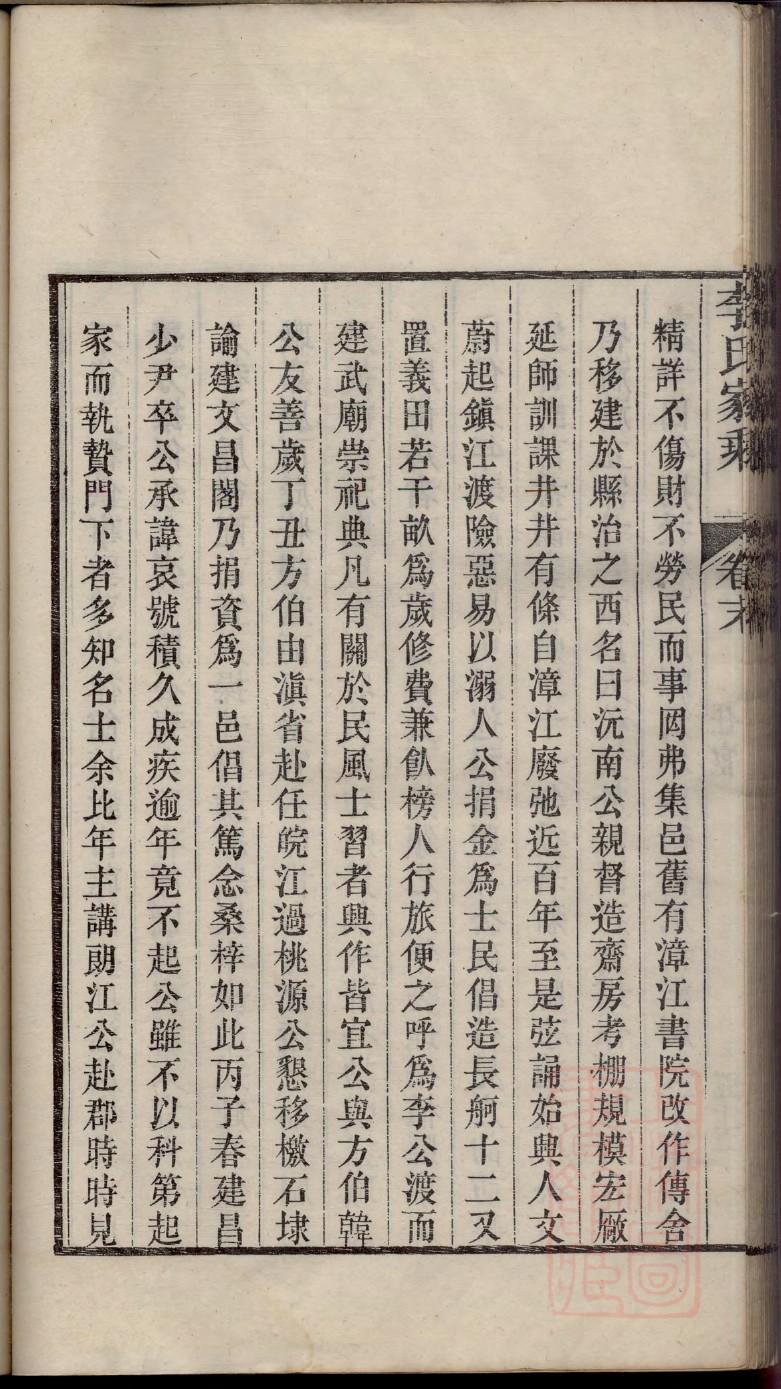 李氏家乘 卷末
精詳不傷財不勞民而事罔弗集邑舊有漳江書院改作傳舍
乃移建於縣治之西名曰沅南公親督造齋房考棚規模宏厰
延師訓課井井有條自漳江廢弛近百年至是弦誦始興人文
蔚起鎮江渡險惡易以溺人公捐金爲士民倡造長舸十二又
置義田若干畝爲歲修費兼飤榜人行旅便之呼爲李公渡而
建武廟崇祀典凡有關於民風士習者興作皆宜公與方伯韓
公友善歲丁丑方伯由滇省赴任皖江過桃源公懇移檄石埭
諭建文昌閣乃捐資爲一邑倡其篤念桑梓如此丙子春建昌
少尹卒公承諱哀號積久成疾逾年竟不起公雖不以科第起
家而執贄門下者多知名士余比年主講朗江公赴郡時時見